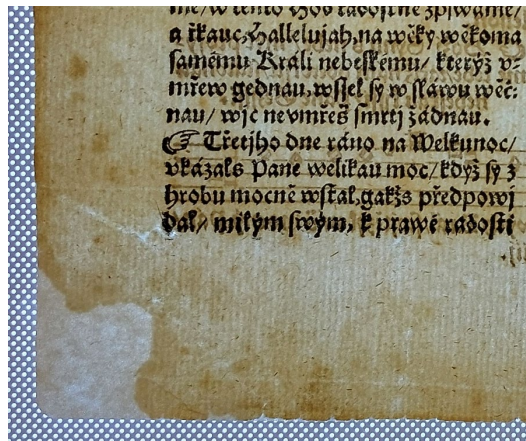 me/ w tento Hod radostně zpiwáme/
a řkauc, Hallelujah, na wěky wěkoma
samému Králi nebeskému/ kterýž v-
mřew gednau, wssel sy w sláwu wěč:
nau/ wjc nevmřeš smrtj žádnau.
☞ Třetjho dne ráno na Welkunoc/
vkázals Pane welikau moc/ když sy z
hrobu mocně wstal, gakžs předpowj
dal/ milým swým, k prawé radosti